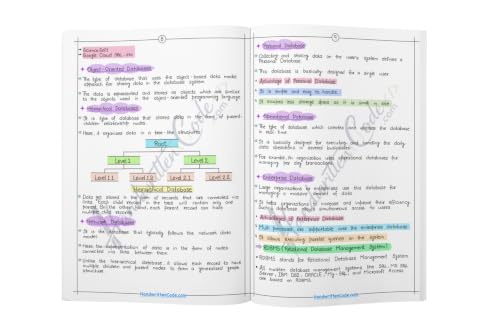 Science Soft
Google Cloud SQL, etc
Object-Oriented Databases
The type of database that uses the object-based data model
approach for storing data in the database system.
The data is represented and stored as objects which are
similar to the objects used in the object-oriented programming language
Hierarchical Databases
It is type of database that stores data in the form of parent-
children relationship nodes
Here, it organizes data in a tree like structure
Root
Level 1
Level 2
Level 1.1
Level 1.2
Level 2.1
Level 2.2
Hierarchical Database
Data get stored in the form of records that are connected via
links. Each child record in the tree will contain only one
parent. On the other hand, each parent record can have
multiple child records
Network Databases
It is the database that typically follows the network data
model
Here, the representation of data is in the form of nodes
connected via links between them
Unlike the hierarchical database, it allows each record to have
multiple children and parent nodes to form a generalized graph
structure
HandwrittenCode.com
Personal Database
Collecting and storing data on the user's system defines a
Personal Database
This database is basically designed for a single user
Advantage of Personal Database
It is simple and easy to handle
It occupies less storage space as it is small in size
Operational Database
The type of database which creates and updates the database
in real time
It is basically designed for executing and handling the daily
data operations in several businesses
For example, An organization uses operational databases for
managing per day transactions
Enterprise Database
Large organizations or enterprises use this database for
managing a massive amount of data
It helps organizations to increase and improve their efficiency
Such a database allows simultaneous access to users
Advantages of Enterprise Database
Multi processes are supportable over the enterprise database
It allows executing parallel queries on the system
RDBMS (Relational Database Management System)
RDBMS stands for Relational Database Management System
All modern database management systems like SQL, MS SQL
Server, IBM DB2, ORACLE, My-SQL, and Microsoft Access
are based on RDBMS
HandwrittenCode.com